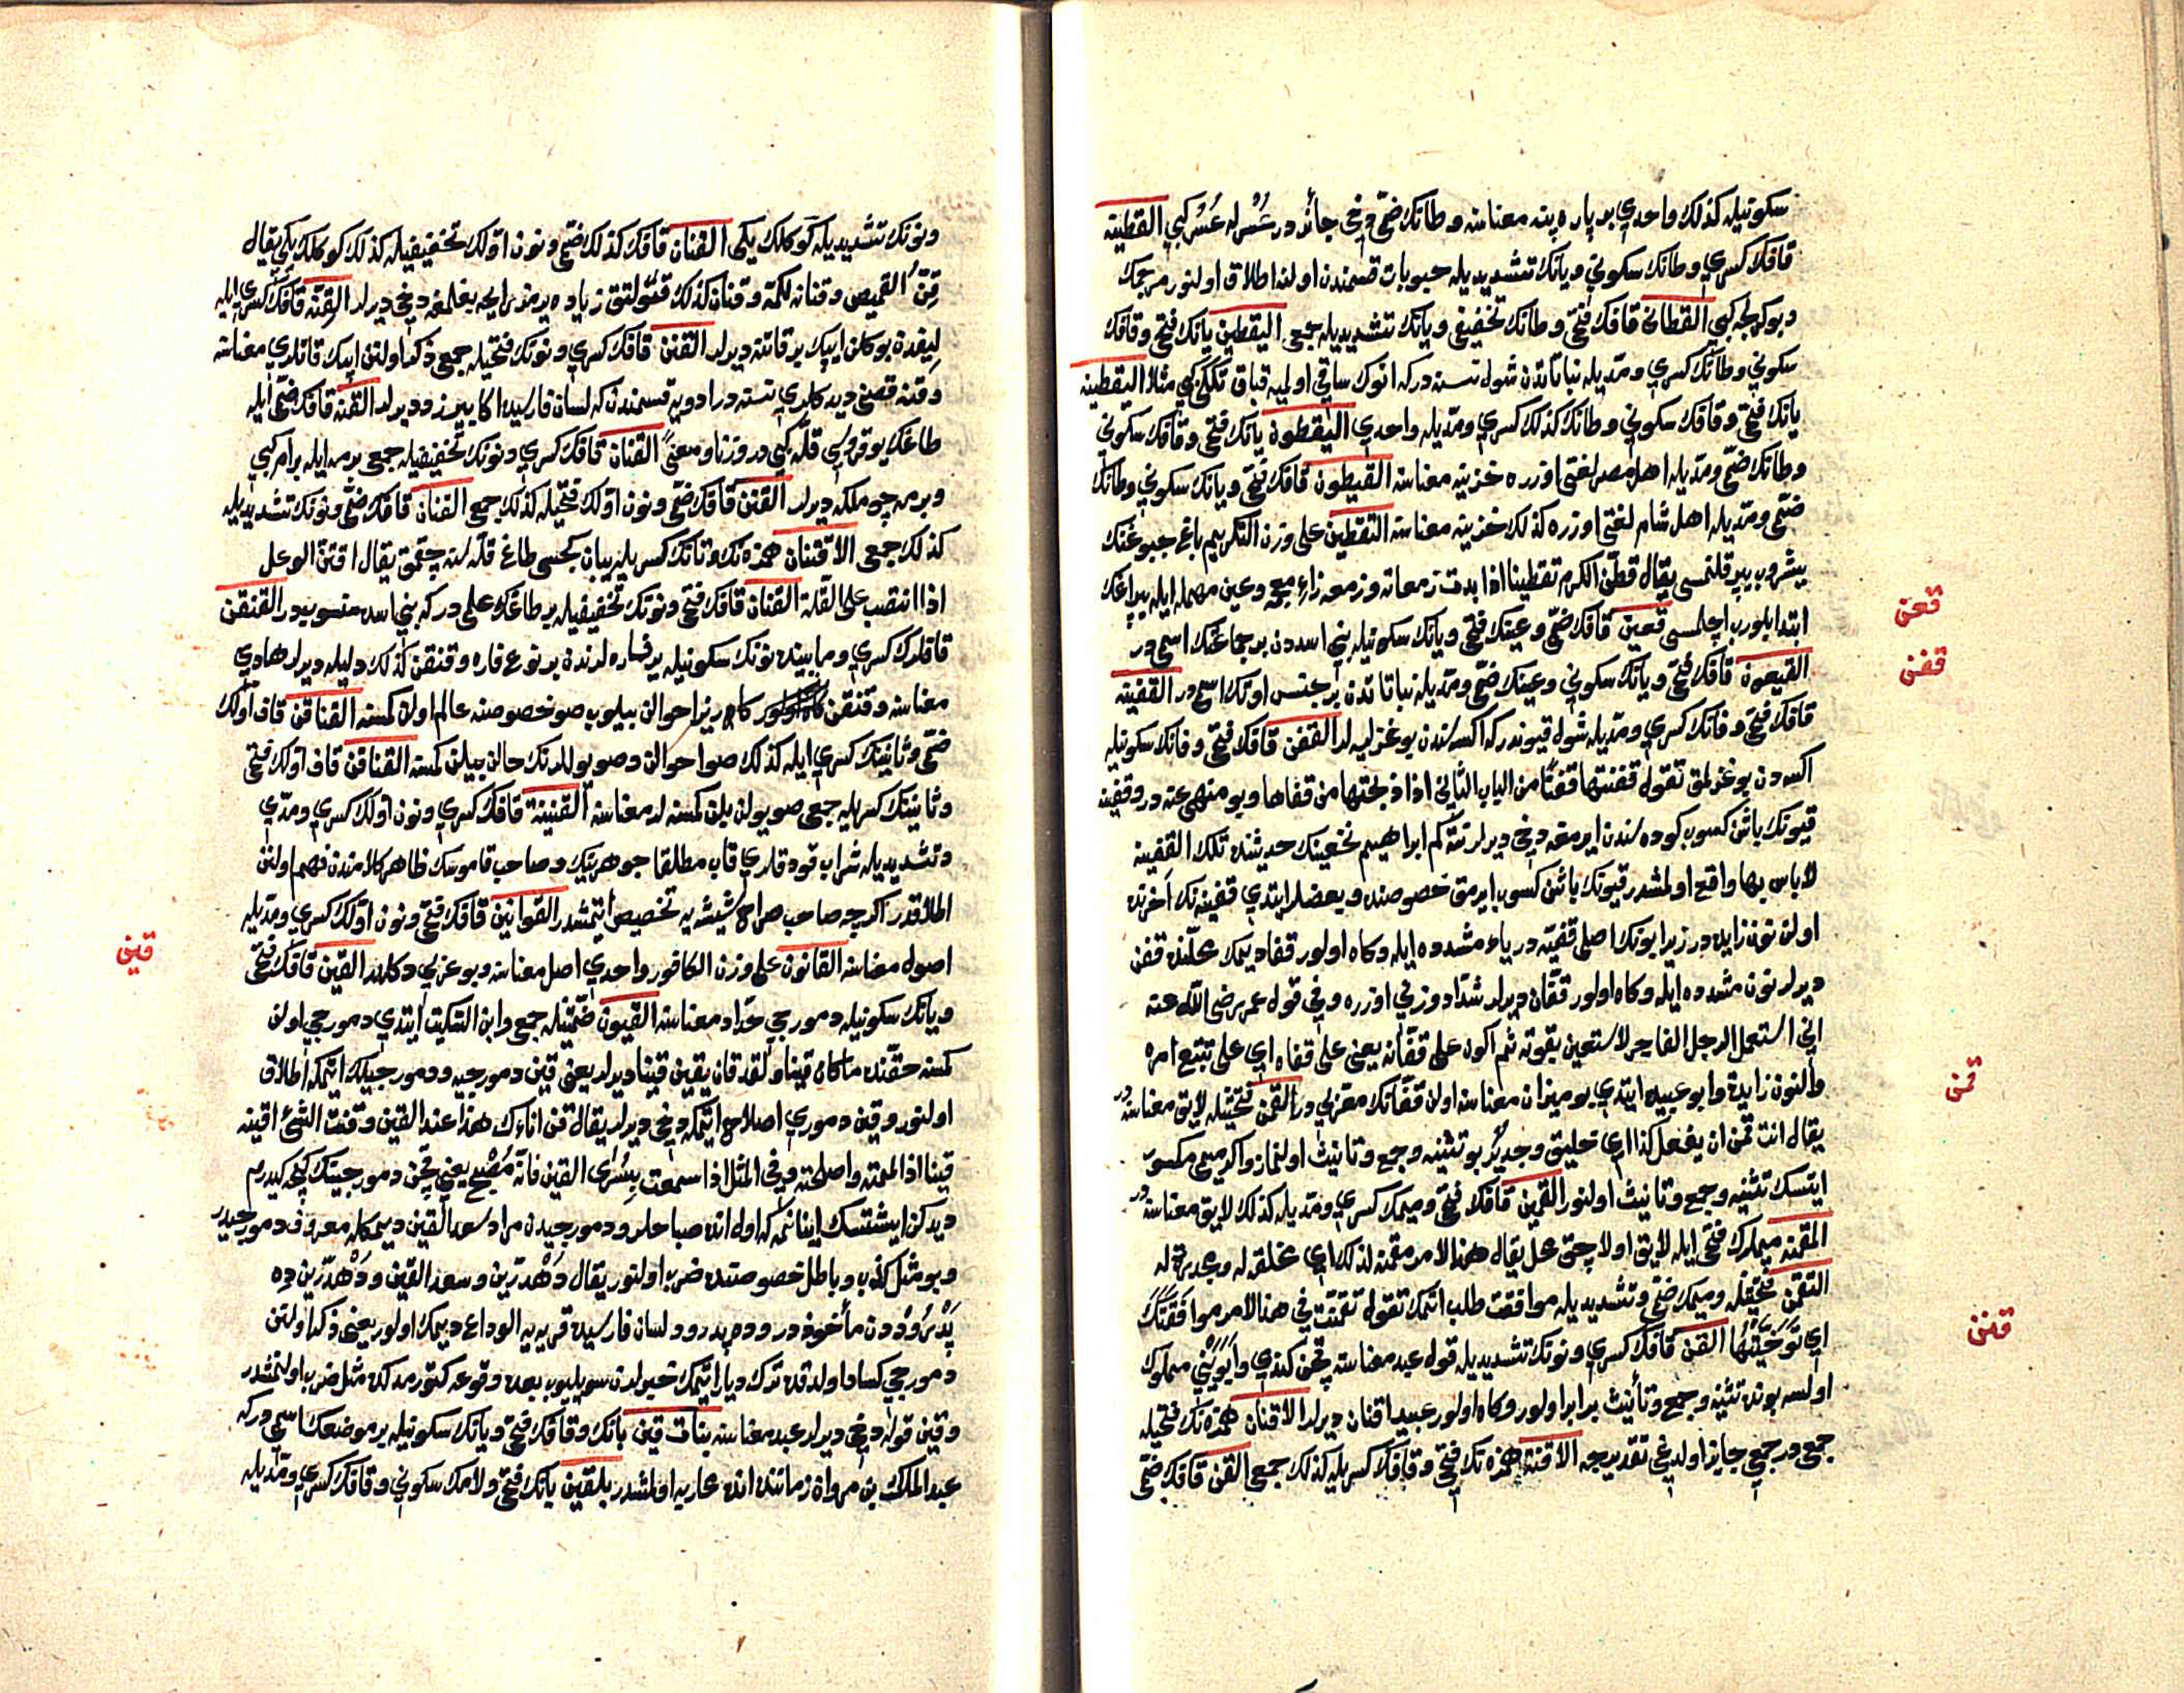 سكونيله كذلك واحدي بر پاره پنبه معناسنه و طانك ضمّي دخي جائز در عُسْر له عُسُر كبي القطنيّه
قافك كسري و طانك سكوني و يانك تشديديله حبوبات قسمندن اولنه اطلاق اولنور مرجمك
و بوكرلجه كبي القطاني قافك فتحي و طانك تخفيفي و يانك تشديديله جمعي اليقطين يانك فتحي و قافك
سكوني و طانك كسري و مدّيله نباتاتدن شول نسنه دركه انوك ساقي اولميه قباق تكلكي كبي مثلا اليقطينه
يانك فتحي و قافك سكوني و طانك كذلك كسري و مدّيله واحدي اليقطون يانك فتحي و قافك سكوني
و طانك ضمّي و مدّيله اهل مصر لغتي اوزره خزينه معناسنه القيطون قافك فتحي و يانك سكوني و طانك
ضمّي و مدّيله اهل شام لغتي اوزره كذلك خزينه معناسنه التقطين على وزن التكريم باغ جبوغنك
يشروب بيپرقلنمسي يقال قطّن الكرم تقطينا اذا بدت زمعاته و زمعه زاءِ معجمه و عين مهمله ايله يپراغك
ابتدا بلوروب اچلمسي قعين قافك ضمّي و عينك فتحي و يانك سكونيله بني اسددن بر جماعتك اسمي در
القيعون قافك فتحي و يانك سكوني و عينك ضمّي و مدّيله نباتاتدن بر جنس اوتك اسمي در القفينه
قافك فتحي و فانك كسري و مدّيله شول قيوندر كه اكسه‌سندن بوغزليه لر القفن قافك فتحي و فانك سكونيله
اكسه‌دن بوغزلمق تقول قفنتها قفنًا من الباب الثاني اذا ذبحتها من قفاها و بو منهي عنه در و قفينه
قيونك باشن كسوب كوده‌سندن ايرمغه دخي ديرلر نتّه كم ابراهيم نخعينك حديثنده تلك القفينه
لا باس بها واقع اولمشدر قيونك باشن كسوب ايرمق خصوصنده و بعضلر ايتدي قفينه نك آخرنده
اولن نون زايده در زيرا بونك اصلي قفيّه در ياء مشدده ايله و كاه اولور قفا ديمك محلّنده قفن
ديرلر نون مشدده ايله و كاه اولور قفّان ديرلر شدّاد وزني اوزره و في قول عمر رضي الله عنه
اني استعمل الرجل الفاجر لاستعين بقوته ثم اكون على قفّانه يعني على قفاه اي على تتبّع امره
و النون زايدة و ابو عبيد ايتدي بو ميزان معناسنه اولن قفّانك معرّبي در القمن فتحتيله لايق معناسنه در
يقال انت قمن ان يفعل كذا اي خليق و جدير بو تثنيه و جمع و تانيث اولنماز و اكر ميمي مكسور
ايتسك تثنيه و جمع و تانيث اولنور القمين قافك فتحي و ميمك كسري و مدّيله كذلك لايق معناسنه در
المقمنه ميملرك فتحي ايله لايق اولاجق محل يقال هذا الامر مقمنة لذلك اي مخلقة له و مجدرة له
التقمّن فتحتيله و ميمك ضمّي و تشديديله موافقت طلب اتمك تقول تقمّنت في هذا الامر موافقتك
اي توخّيتها القنّ قافك كسري و نونك تشديديله قول عبد معناسنه چمن كندي و ابويني مملوك
اولسه بونده تثنيه و جمع و تأنيث برابر اولور و كاه اولور عبيد اقنان ديرلر الاقنان همزه نك فتحيله
جمعي در جمعي جايز اولديغي تقديرجه الاقنّة همزه نك فتحي و قافك كسريله كذلك جمع القنّ قافك ضمّي
قعن
قفن
قمن
قنن
و نونك تشديديله كوكلك يكي القنان قافك كذلك ضمّي و نون اوّلك تخفيفيله كذلك كوكلك يكي يقال
قنّ القميص و قنانه لكمّه و قنان كذلك قولتق زياده يرمز رايحه بغلمغه دخي ديرلر القنّه قافك كسري ايله
ليفدن بوكلن ايپك بر قاتنه ديرلر القنن قافك كسري و نونك فتحيله جمعي ذكر اولنن ايپك قاتلري معناسنه
و قنه قصني ديدكلري نسنه در ادويه قسمندن كه لسان فارسيده اكا بيرزد ديرلر القنّة قافك ضمّي ايله
طاغك يوقروسي قلّه كبي در وزنا و معنىً القنان قافك كسري و نونك تخفيفيله جمعي برمه ايله برام كبي
و برمه چوملكه ديرلر القنن قافك ضمّي و نون اوّلك فتحيله كذلك جمعي القنان قافك ضمّي و نونك تشديديله
كذلك جمعي الاقتنان همزه نك و تانك كسريله يبان كجسي طاغ قلّه‌سنه چقمق يقال اقتنّ الوعل
اذا انتصب على القلّة القنان قافك فتحي و نونك تخفيفيله بر طاغك علمي در كه بني اسده منسوبدر القنقن
قافلرك كسري و مابينده نونك سكونيله بر فساره لردن بر نوع فاره و قنقن كذلك دليله ديرلر هادي
معناسنه و قنقن كاه اولور كاه يرنر احوالن بيلوب صو خصوصنه عالم اولن كمسنه القناقن قاف اوّلك
ضمّي و ثانينك كسري ايله كذلك صو احوالن و صو يوللرنك حالن بيلن كمسنه القناقن قاف اوّلك فتحي
و ثانينك كسريله جمعي صو يولن بلن كمسنه لر معناسنه القنينة قافك كسري و نون اوّلك كسري و مدّي
و تشديديله شراب قودقلري قاب مطلقا جوهرينك و صاحب قاموسك ظاهر كلامندن فهم اولنن
اطلاقدر اكرچه صاحب صراح شيشه يه تخصيص ايتمشدر القوانين قافك فتحي و نون اوّلك كسري و مدّيله
اصول معناسنه القانون على وزن الكافور واحدي اصل معناسنه و بو عربي دكلدر القين قافك فتحي
و يانك سكونيله دمورجي حدّاد معناسنه القيون ضمّتيله جمعي و ابن السكيت ايتدي دمورجي اولن
كمسنه حقّنده ما كان قينا و لقد قان يقين قينا ديرلر يعني قين دمورجيه و دمورجيلك اتمكه اطلاق
اولنور و قين دموري اصلاح ايتمكه دخي ديرلر يقال قن اناءك هذا عند القين و قنت الشئ اقينه
قينا اذا لممته و اصلحته و في المثل اذا سمعت بسُرَى القين فانّه مُصْبِح يعني چمن دمورجينك كيجه كيدرم
ديدكن ايشتسك اينانمه كه اول انده صباحلر و دمورجيدن مراد سعد القين ديمكله معروف دمورجيدر
و بو مثل كذب و باطل خصوصنده ضرب اولنور يقال دُهْدُرَّين و سعد القين و دُهْدُرَّين دِه
بَدْرُودْ دن مأخوذ در و ده بدرود لسان فارسيده قريه يه الوداع ديمك اولور يعني ذكر اولنن
دمورجي كساد اولدقده ترك ديار ايتمك خبرلدن سويليوب بعده وقوعه كتورمدكده مثل ضرب اولنمشدر
و قين قوله دخي ديرلر عبد معناسنه بنات قين بانك و قافك فتحي و يانك سكونيله بر موضعك اسمي در كه
عبد الملك بن مروان زماننده انده محاربه اولمشدر بلقين بانك فتحي و لامك سكوني و قافك كسري و مدّيله
قين